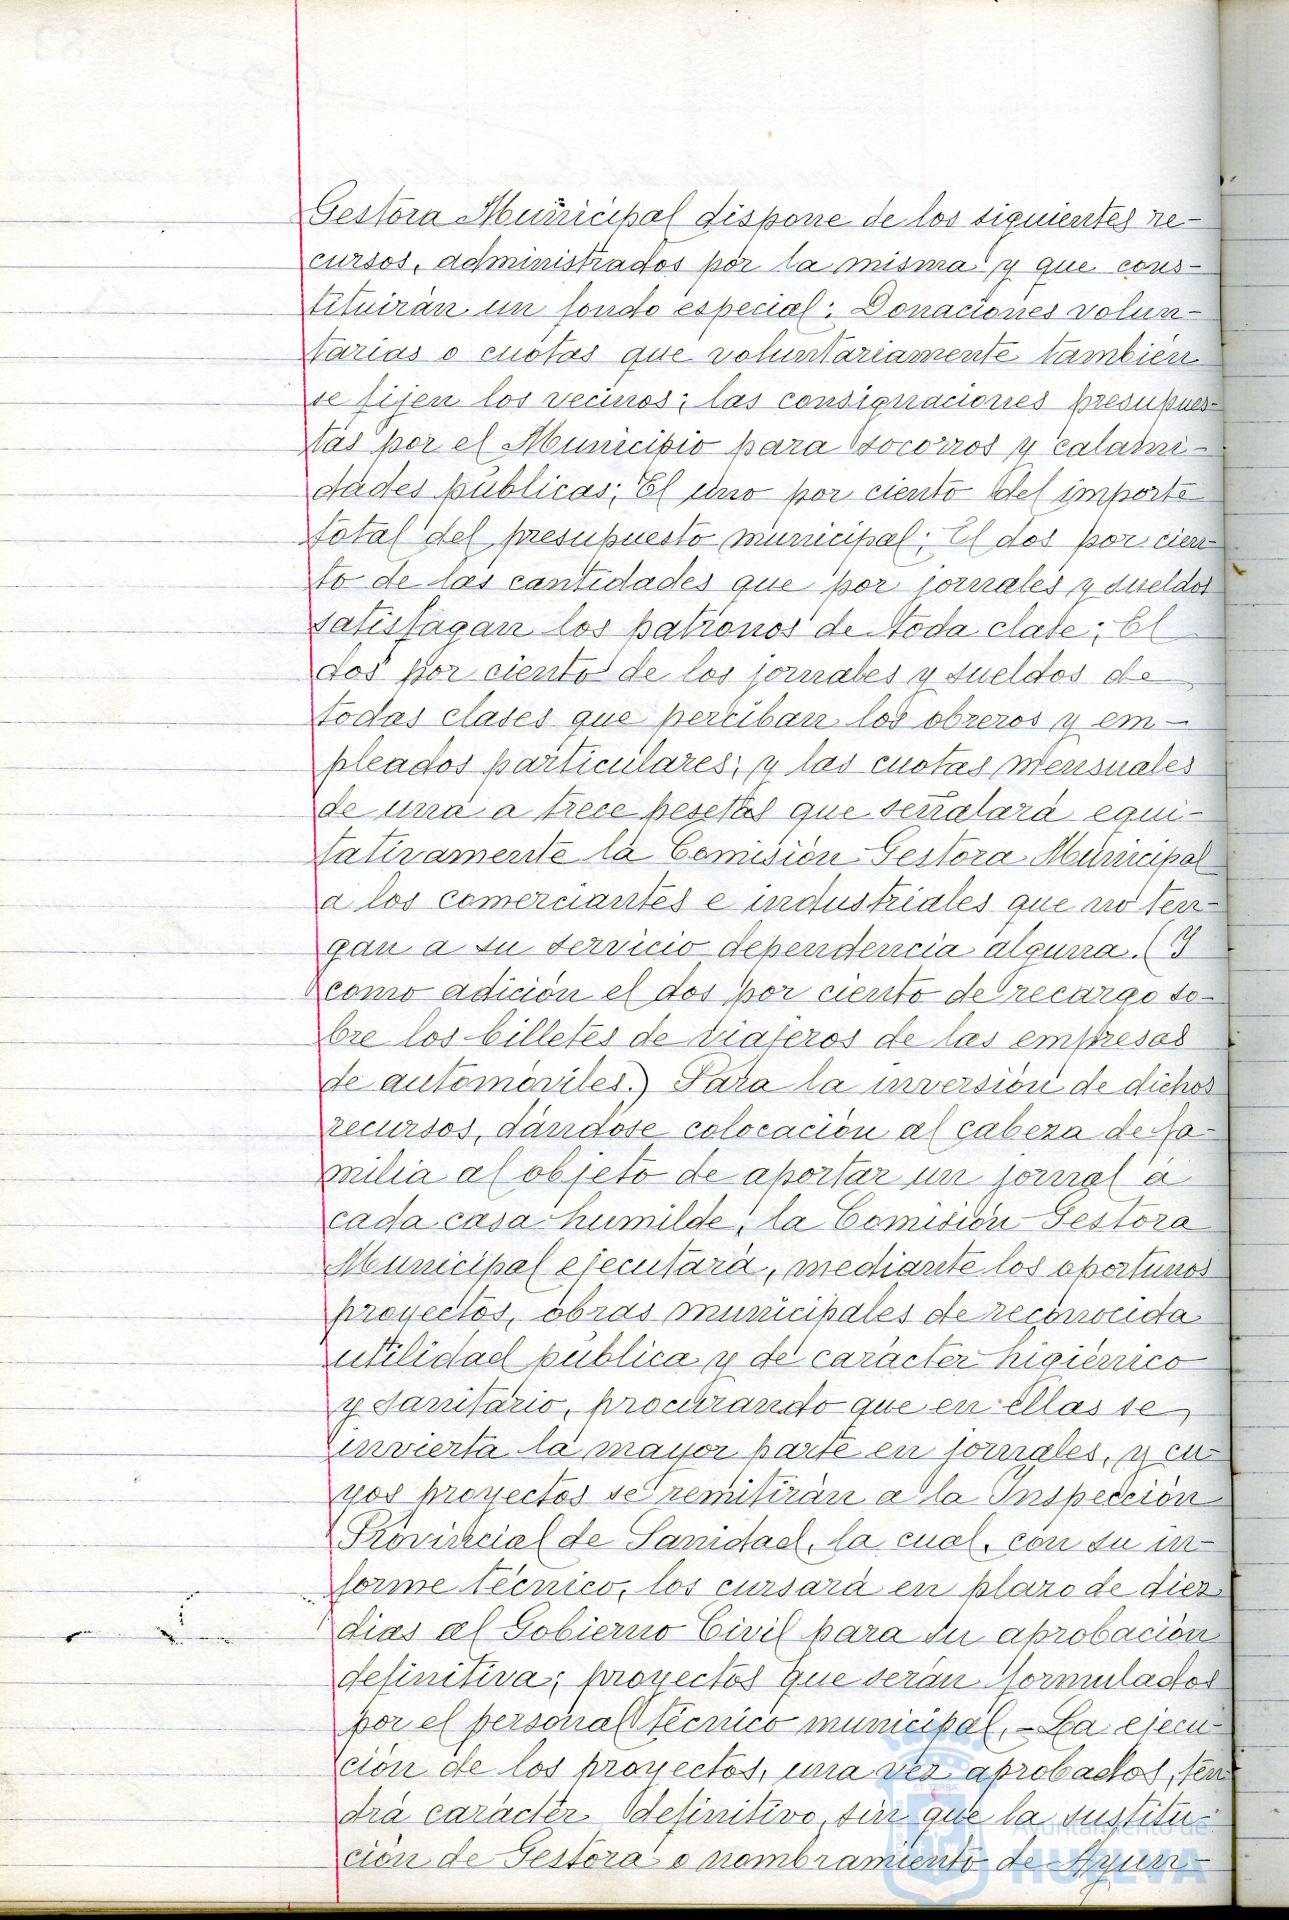 Gestora Municipal dispone de los siguientes re-
cursos, administrados por la misma y que cons-
tituirán un fondo especial: Donaciones volun-
tarias o cuotas que voluntariamente también
se fijen los vecinos; las consignaciones presupues-
tas por el Municipio para socorros y calami-
dades públicas; El uno por ciento del importe
total del presupuesto municipal; El dos por cien-
to de las cantidades que por jornales y sueldos
satisfagan los patronos de toda clase; El
dos por ciento de los jornales y sueldos de
todas clases que perciban los obreros y em-
pleados particulares; y las cuotas mensuales
de una a trece pesetas que señalará equi-
tativamente la Comisión Gestora Municipal
a los comerciantes e industriales que no ten-
gan a su servicio dependencia alguna. (Y
como adición el dos por ciento de recargo so-
bre los billetes de viajeros de las empresas
de automóviles.) Para la inversión de dichos
recursos, dándose colocación al cabeza de fa-
milia al objeto de aportar un jornal a
cada casa humilde, la Comisión Gestora
Municipal ejecutará, mediante los oportunos
proyectos, obras municipales de reconocida
utilidad pública y de carácter higiénico
y sanitario, procurando que en ellas se
invierta la mayor parte en jornales, y cu-
yos proyectos se remitirán a la Inspección
Provincial de Sanidad, la cual, con su in-
forme técnico, los cursará en plazo de diez
dias al Gobierno Civil para su aprobación
definitiva; proyectos que serán formulados
por el personal técnico municipal.- La ejecu-
ción de los proyectos, una vez aprobados, ten-
drá carácter definitivo, sin que la sustitu-
ción de Gestora o nombramiento de Ayun-
Ayuntamiento de
HUELVA